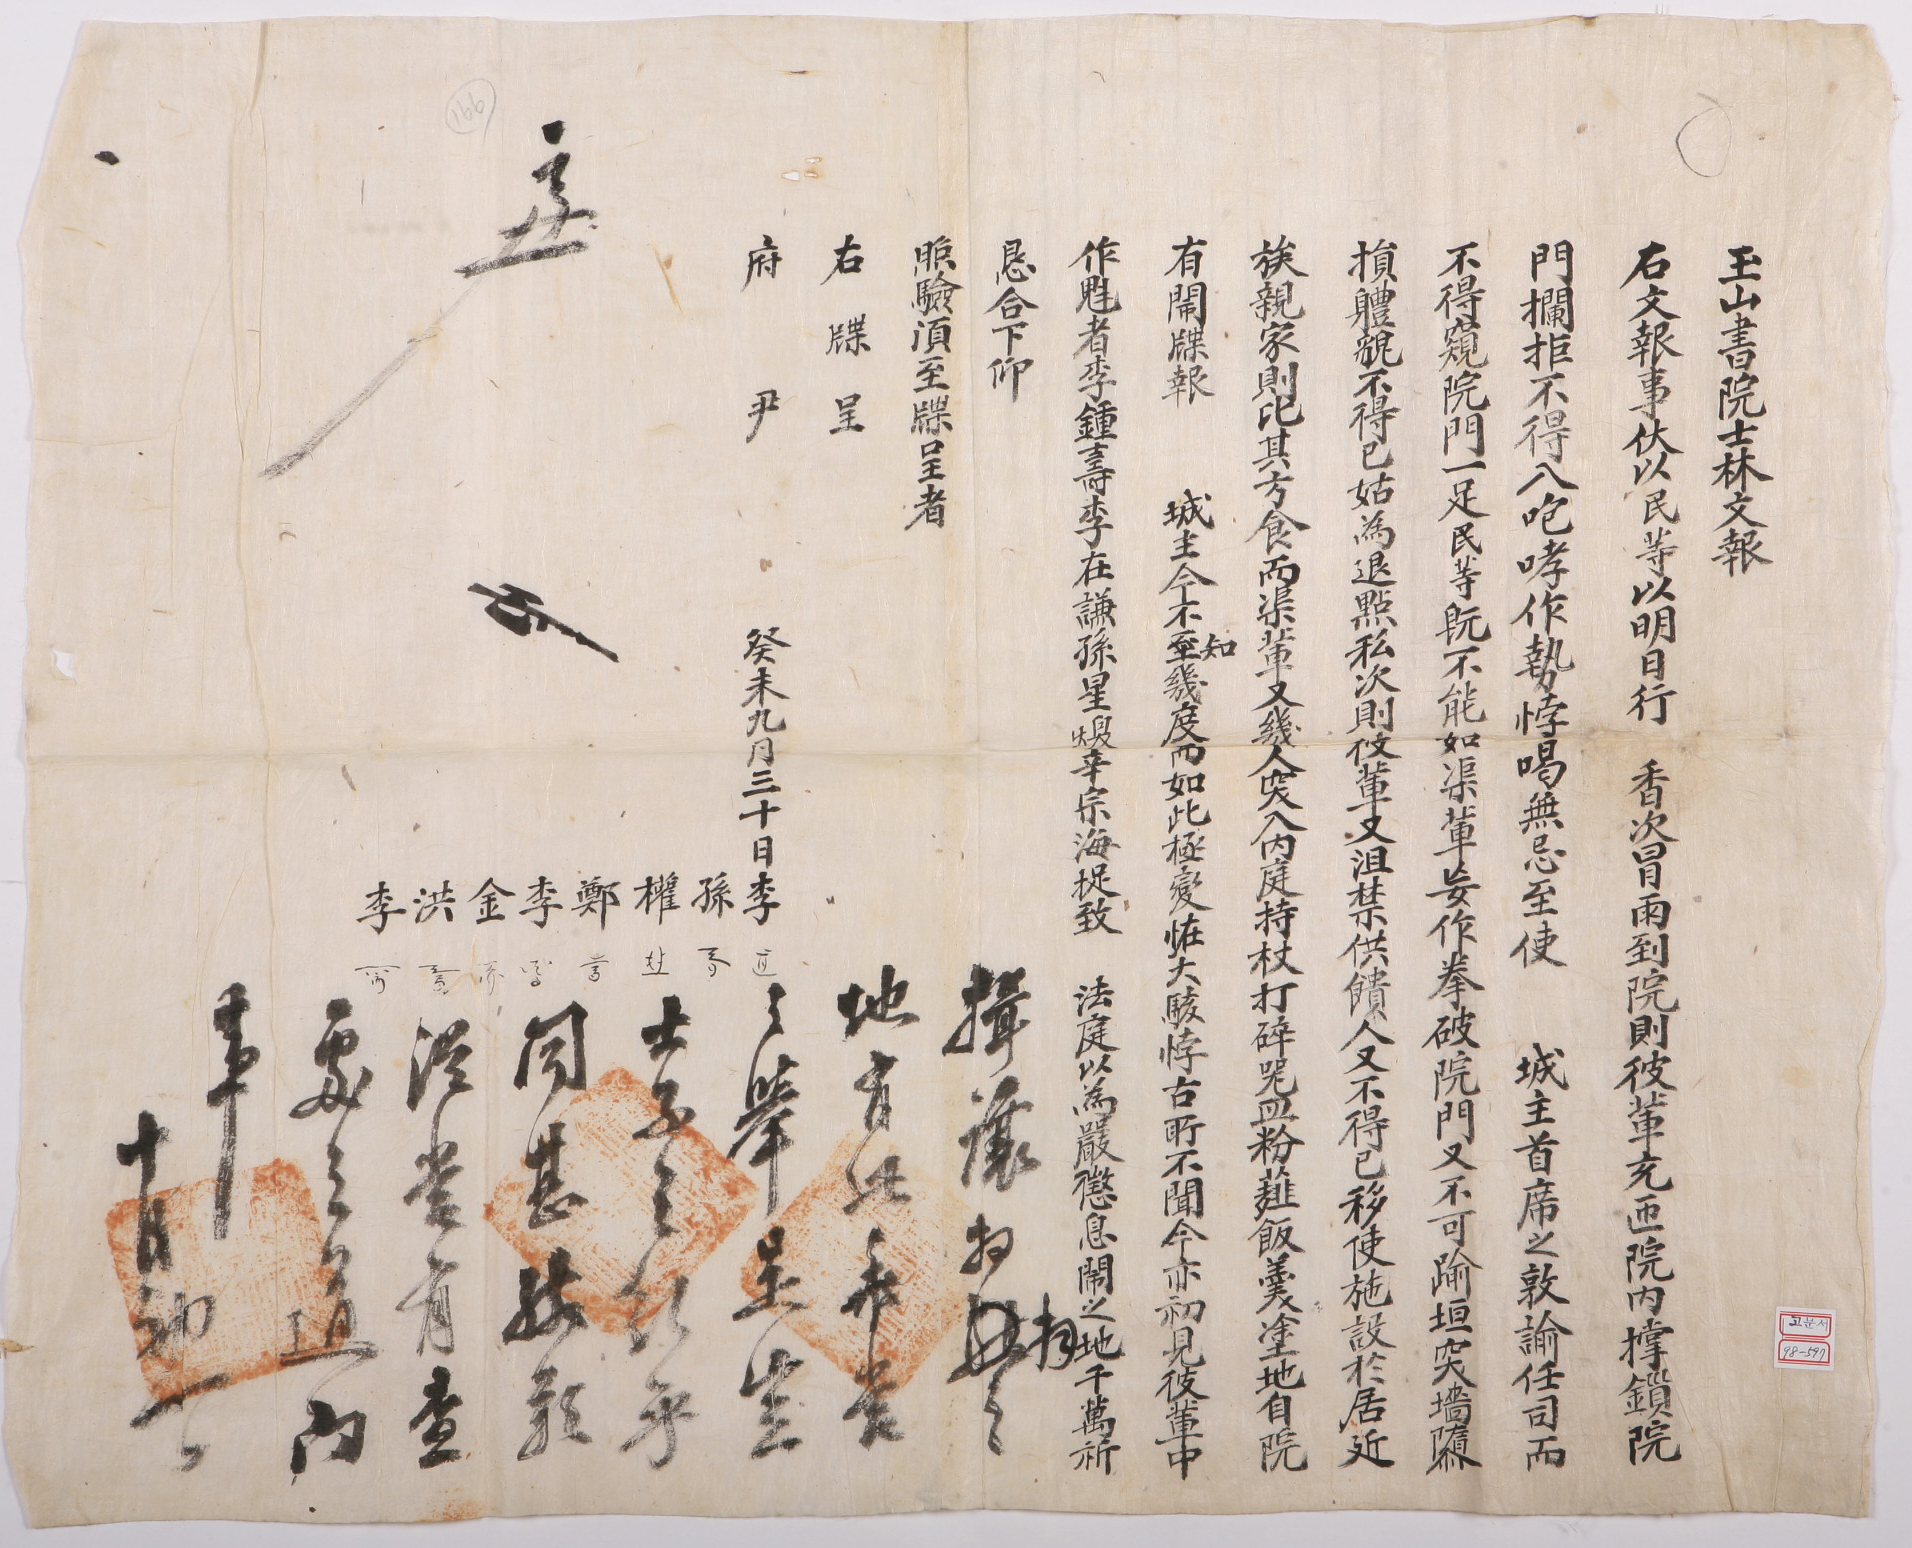 玉山書院士林文報
右文報事伏以民等以明日行 香次冒雨到院則彼輩充匝院內撑鎖院
門攔拒不得入咆哮作勢悖喝無忌至使 城主首席之敦諭任司而
不得窺院門一足民等旣不能如渠輩妄作拳破院門又不可踰垣突墻隳
損軆貌不得已姑爲退點私次則彼輩又沮禁供饋人又不得已移使施設於居近
族親家則比其方食而渠輩又幾人突入內庭持杖打碎器皿粉虀飯羹塗地自院
有鬧牒報 城主今不知幾度而如此極變恠大駭悖古所不聞今亦初見彼輩中
作魁者李鍾壽李在謙孫星煥辛宗海捉致 法庭以爲嚴懲息鬧之地千萬祈
恳合下仰
照驗須至牒呈者
右牒呈
府尹
癸未九月三十日李
孫
權
鄭
李
金
洪
李
揖讓相
地有此
之擧是豈
士子之
聞甚駭歎
從當有查
處之道向
事
十月初一日
166
고문서
98-597